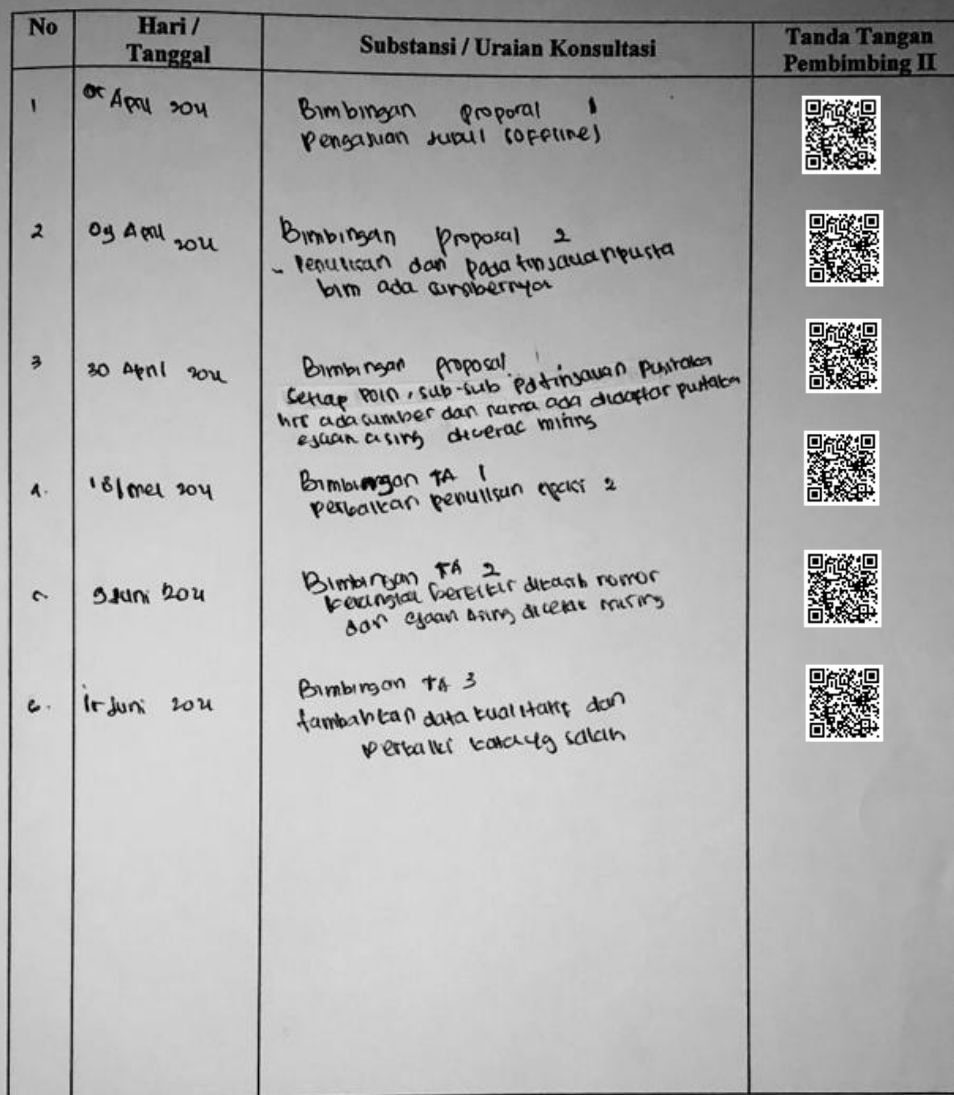 No Hari / Tanggal Substansi / Uraian Konsultasi Tanda Tangan Pembimbing II
1 April Bimbingan Proposal 1
Pengajuan Judul (Offline)
2 09 April Bimbingan Proposal 2
- Penulisan dan pada tinjauan pustaka
blm ada sumbernya
3 30 April Bimbingan Proposal
Setiap Poin, sub-sub Pd tinjauan Pustaka
hrs ada sumber dan nama ada didaftar pustaka
ejaan asing dicetak miring
4. 18 mei Bimbingan TA 1
perbaikan penulisan 2
5 9 Juni Bimbingan TA 2
kerangka berfikir dikasih nomor
dan ejaan asing dicetak miring
6. 15 Juni Bimbingan TA 3
tambahkan data kualitatif dan
perbaiki kata yg salah